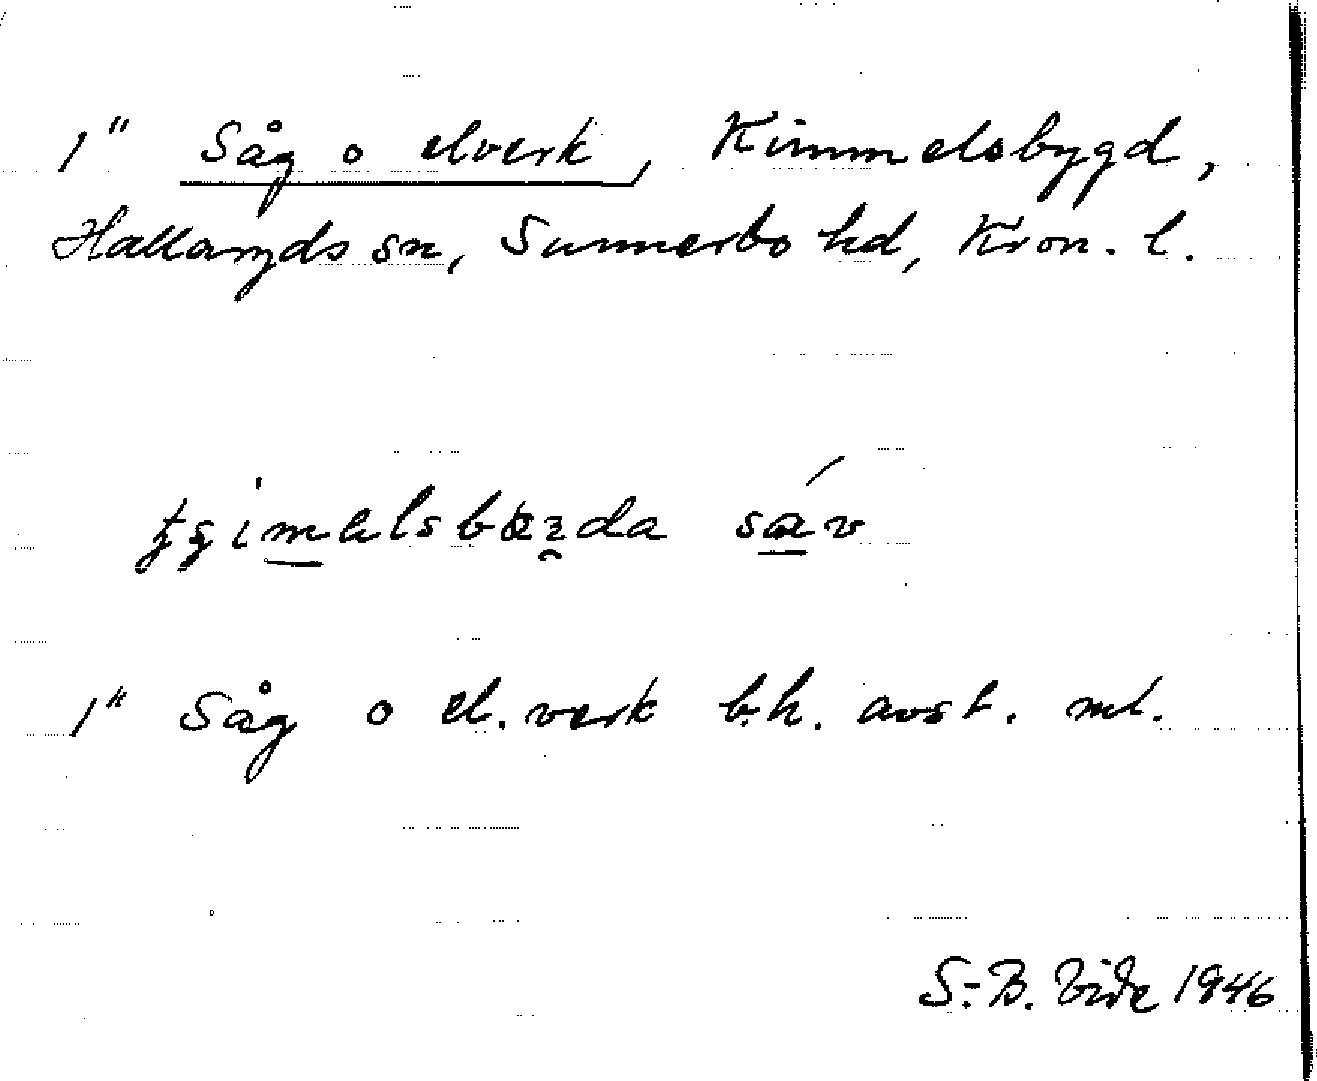 1" Såg o elverk, Kimmelsbygd,
Hallaryds sn, Sunnerbo hd, Kron. l.
sav
1" Såg o el. verk b.h. avst. ml.
S.-B. Vide 1946